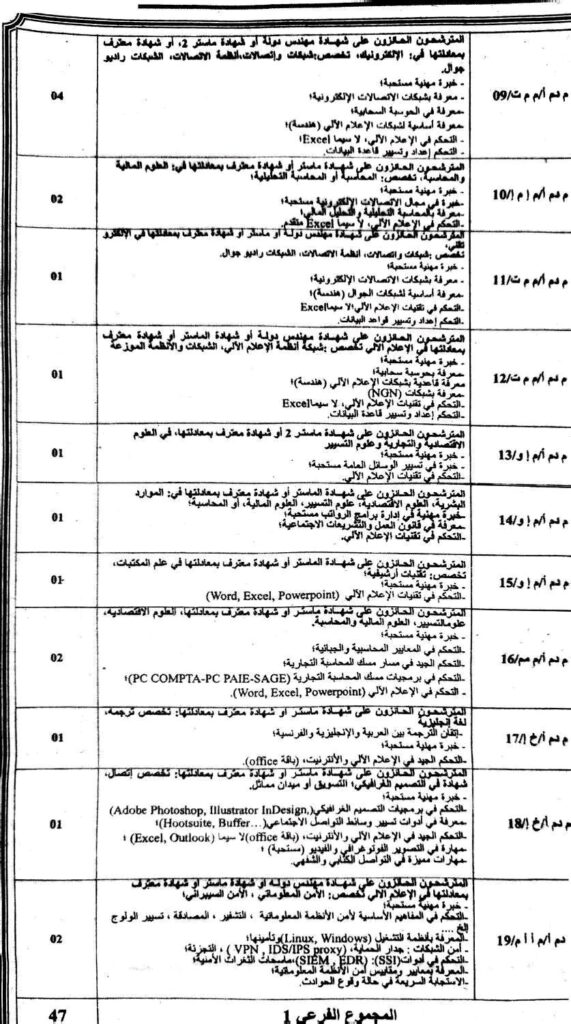 المترشحون الحائزون على شهادة مهندس دولة أو شهادة ماستر 2، أو شهادة معترف
بمعادلتها في: الإلكترونيك، تخصص:شبكات وإتصالات،أنظمة الاتصالات، الشبكات راديو
جوال.
- خبرة مهنية مستحبة؛
- معرفة بشبكات الاتصالات الإلكترونية؛
- معرفة في الحوسبة السحابية؛
-معرفة أساسية لشبكات الإعلام الآلي (هندسة)؛
- التحكم في الإعلام الآلي، لا سيما Excel؛
- التحكم إعداد وتسيير قاعدة البيانات.
م دم أ/م م ت/09
04
المترشحون الحائزون على شهادة ماستر أو شهادة معترف بمعادلتها في: العلوم المالية
والمحاسبة، تخصص: المحاسبة أو المحاسبة التحليلية؛
- خبرة مهنية مستحبة؛
- خبرة في مجال الاتصالات الإلكترونية مستحبة؛
- معرفة بالمحاسبة التحليلية والتحليل المالي؛
-التحكم في الإعلام الآلي، لا سيما Excel متقدم.
م دم أ/م إ م إ/10
02
المترشحون الحائزون على شهادة مهندس دولة أو ماستر أو شهادة معترف بمعادلتها في الإلكترو
تقني،
تخصص :شبكات واتصالات، أنظمة الاتصالات، الشبكات راديو جوال.
- خبرة مهنية مستحبة؛
- معرفة بشبكات الاتصالات الإلكترونية؛
-معرفة أساسية لشبكات الجوال (هندسة)؛
-التحكم في تقنيات الإعلام الآلي،لا سيماExcel
-التحكم إعداد وتسيير قواعد البيانات.
م دم أ/م م ت/11
01
المترشحون الحائزون على شهادة مهندس دولة أو شهادة الماستر أو شهادة معترف
بمعادلتها في الإعلام الآلي تخصص :شبكة أنظمة الإعلام الآلي، الشبكات والأنظمة الموزعة
- خبرة مهنية مستحبة؛
-معرفة بحوسبة سحابية؛
معرفة قاعدية بشبكات الإعلام الآلي (هندسة)؛
-معرفة بشبكات (NGN)
-التحكم في تقنيات الإعلام الآلي، لا سيماExcel
-التحكم إعداد وتسيير قاعدة البيانات.
م دم أ/م م ت/12
01
المترشحون الحائزون على شهادة ماستر 2 أو شهادة معترف بمعادلتها، في العلوم
الاقتصادية والتجارية وعلوم التسيير
- خبرة مهنية مستحبة؛
- خبرة في تسيير الوسائل العامة مستحبة؛
-التحكم في تقنيات الإعلام الآلي.
م دم أ/م إ و/13
01
المترشحون الحائزون على شهادة الماستر أو شهادة معترف بمعادلتها في: الموارد
البشرية، العلوم الاقتصادية، علوم التسيير، العلوم المالية، أو المحاسبة؛
-خبرة مهنية في إدارة برامج الرواتب مستحبة؛
-معرفة في قانون العمل والتشريعات الاجتماعية؛
-التحكم في تقنيات الإعلام الآلي.
م دم أ/م إ و/14
01
المترشحون الحائزون على شهادة الماستر أو شهادة معترف بمعادلتها في علم المكتبات،
تخصص: تقنيات أرشيفية؛
- خبرة مهنية مستحبة؛
-التحكم في تقنيات الإعلام الآلي (Word, Excel, Powerpoint)
م دم أ/م إ و/15
01
المترشحون الحائزون على شهادة ماستر أو شهادة معترف بمعادلتها، العلوم الاقتصادية،
علوم التسيير، العلوم المالية والمحاسبة.
- خبرة مهنية مستحبة؛
-التحكم في المعايير المحاسبية والجبائية؛
-التحكم الجيد في مسار مسك المحاسبة التجارية؛
-التحكم في برمجيات مسك المحاسبة التجارية (PC COMPTA-PC PAIE-SAGE)؛
- التحكم في الإعلام الآلي (Word, Excel, Powerpoint).
م دم أ/م مم/16
02
المترشحون الحائزون على شهادة ماستر أو شهادة معترف بمعادلتها: تخصص ترجمة،
لغة إنجليزية
-إتقان الترجمة بين العربية والإنجليزية والفرنسية؛
- خبرة مهنية مستحبة؛
-التحكم الجيد في الإعلام الآلي والأنترنيت، (باقة office).
م دم أ/خ إ/17
01
المترشحون الحائزون على شهادة ماستر أو شهادة معترف بمعادلتها: تخصص إتصال،
شهادة في التصميم الغرافيكي؛ التسويق أو ميدان مماثل.
- خبرة مهنية مستحبة؛
-التحكم في برمجيات التصميم الغرافيكي(Adobe Photoshop, Illustrator InDesign,)
-معرفة في أدوات تسيير وسائط التواصل الاجتماعي(Hootsuite, Buffer…)؛
-التحكم الجيد في الإعلام الآلي والأنترنيت، (باقة office)لا سيما (Excel, Outlook) ؛
-مهارة في التصوير الفوتوغرافي والفيديو (مستحبة) ؛
-مهارات مميزة في التواصل الكتابي والشفهي.
م دم أ/خ إ/18
01
المترشحون الحائزون على شهادة مهندس دولة أو شهادة ماستر أو شهادة معترف
بمعادلتها في الإعلام الآلي تخصص: الأمن المعلوماتي ، الأمن السيبراني؛
- خبرة مهنية مستحبة؛
-التحكم في المفاهيم الأساسية لأمن الأنظمة المعلوماتية ، التشفير ، المصادقة ، تسيير الولوج
إلخ...
-المعرفة بأنظمة التشغيل (Linux, Windows)وتأمينها؛
- أمن الشبكات : جدار الحماية، (VPN , IDS/IPS proxy ) ، التجزئة؛
-التحكم في أدوات(SSI): (SIEM , EDR)،ماسحات الثغرات الأمنية؛
-المعرفة بمعايير ومقاييس أمن الأنظمة المعلوماتية؛
-الاستجابة السريعة في حالة وقوع الحوادث.
م دم أ/م أ أ م/19
02
المجموع الفرعي 1
47